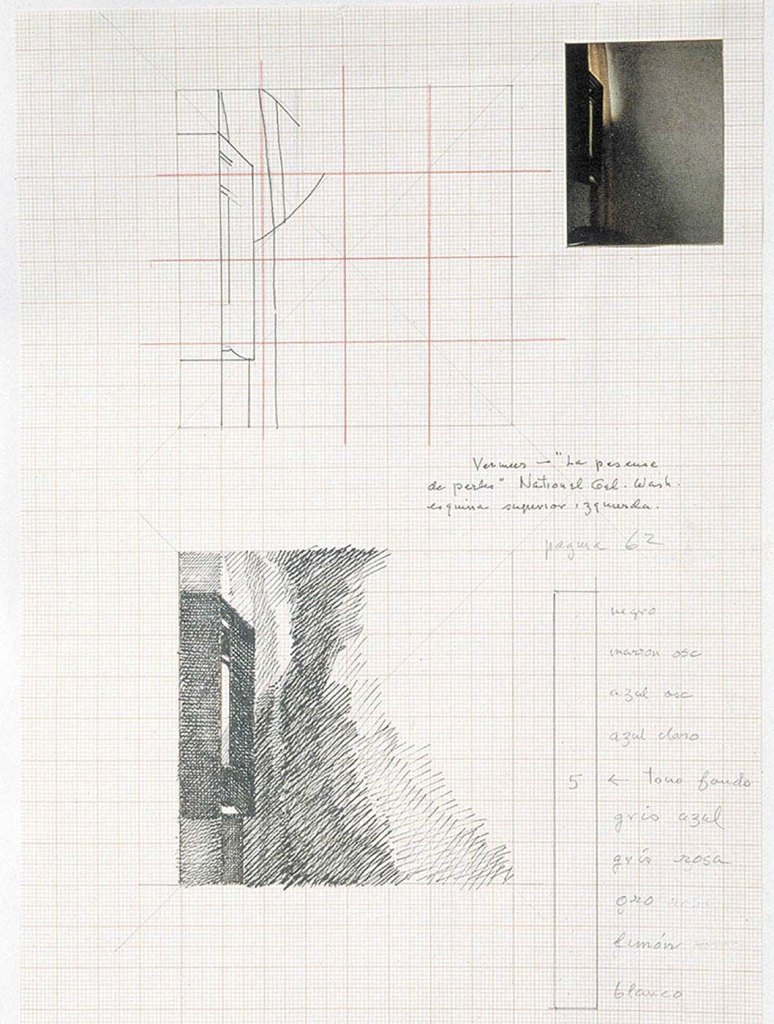 Vermeer → "La peseuse
de perles" National Gal. Wash.
esquina superior izquierda.
pagina 62
negro
marron osc
azul osc
azul claro
5 ← tono fondo
gris azul
gris rosa
oro
limón
blanco